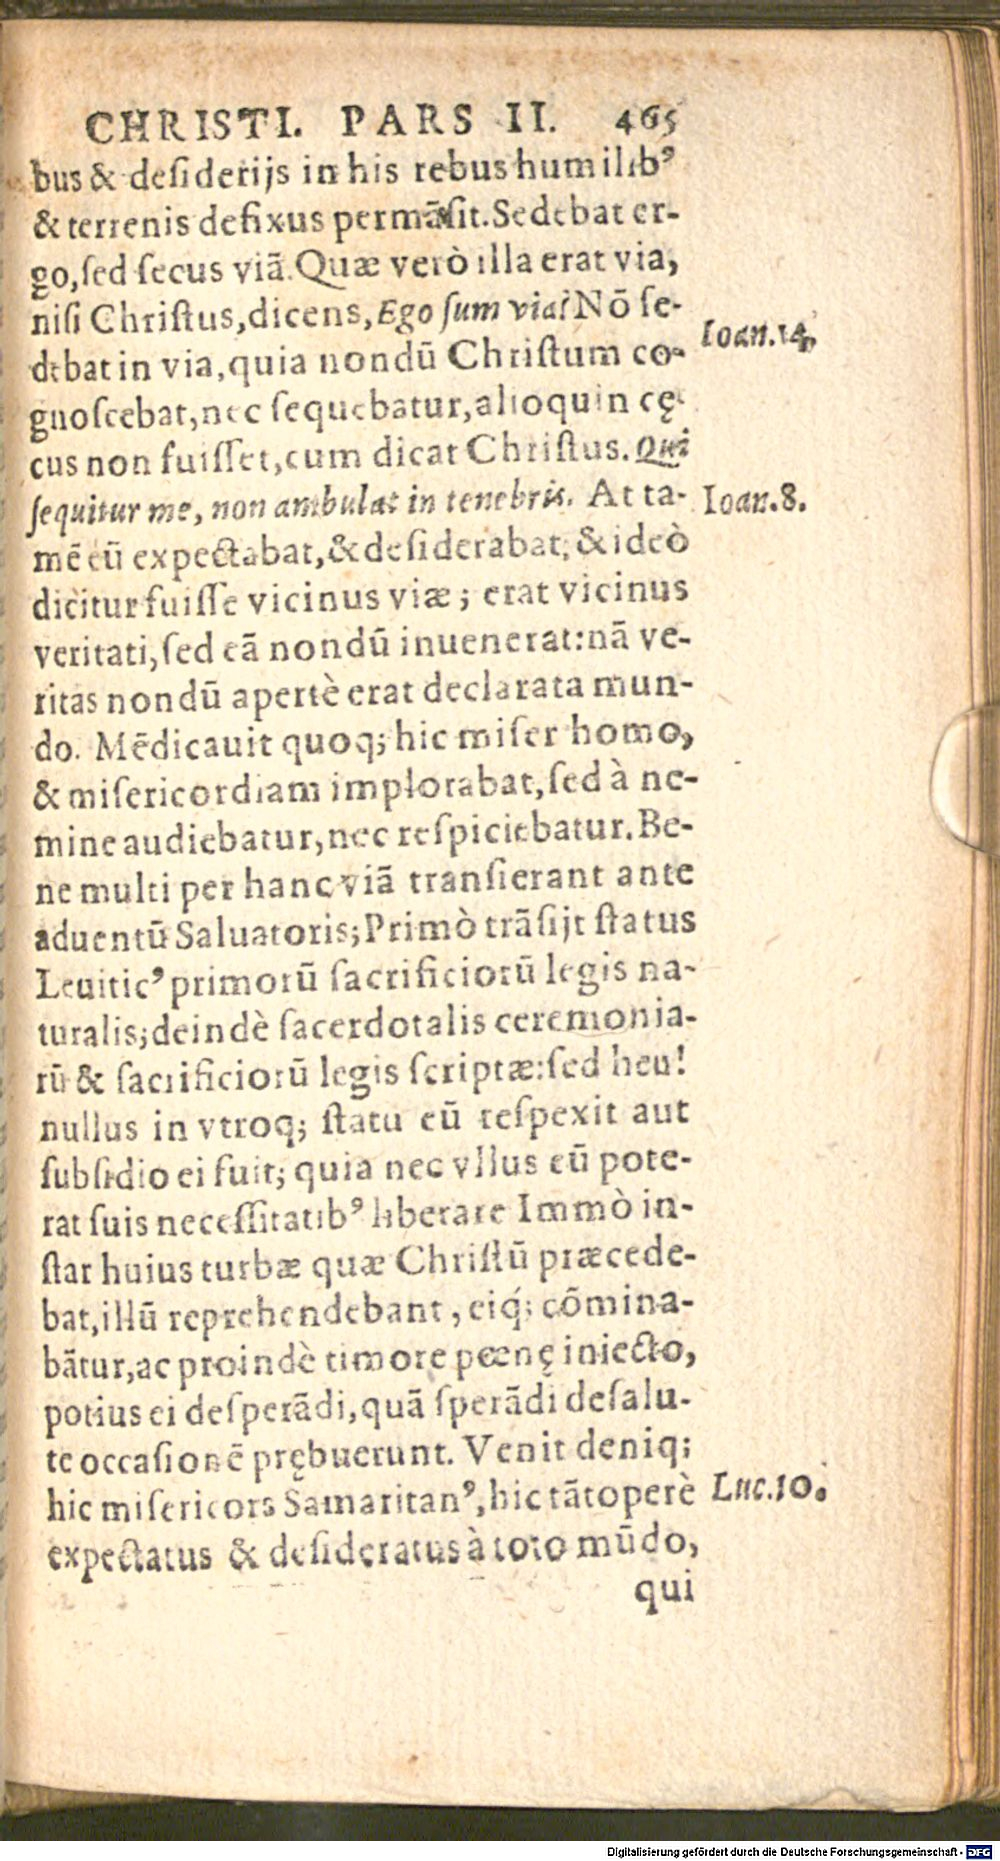 CHRISTI. PARS II. 465
bus & deſiderijs in his rebus humilib⁹
& terrenis defixus permāſit. Sedebat er-
go, ſed ſecus viā. Quæ verò illa erat via,
niſi Chriſtus, dicens, Ego ſum via? Nō ſe-
Ioan. 14,
debat in via, quia nondū Chriſtum co-
gnoſcebat, nec ſequebatur, alioquin cę-
cus non fuiſſet, cum dicat Chriſtus. Qui
ſequitur me, non ambulat in tenebris. At ta-
Ioan. 8.
mē eū expectabat, & deſiderabat, & ideò
dicitur fuiſſe vicinus viæ; erat vicinus
veritati, ſed eā nondū inuenerat: nā ve-
ritas nondū apertè erat declarata mun-
do. Mēdicauit quoq; hic miſer homo,
& miſericordiam implorabat, ſed à ne-
mine audiebatur, nec reſpiciebatur. Be-
ne multi per hanc viā tranſierant ante
aduentū Saluatoris; Primò trāſijt ſtatus
Leuitic⁹ primorū ſacrificiorū legis na-
turalis; deindè ſacerdotalis ceremonia-
rū & ſacrificiorū legis ſcriptæ: ſed heu!
nullus in vtroq; ſtatu eū reſpexit aut
ſubſidio ei fuit; quia nec vllus eū pote-
rat ſuis neceſſitatib⁹ liberare Immò in-
ſtar huius turbæ quæ Chriſtū præcede-
bat, illū reprehendebant, eiq́; cōmina-
bātur, ac proindè timore pœnę iniecto,
potius ei deſperādi, quā ſperādi de ſalu-
te occaſionē prębuerunt. Venit deniq;
hic miſericors Samaritan⁹, hic tātoperè
Luc. 10.
expectatus & deſideratus à toto mūdo,
qui
Digitalisierung gefördert durch die Deutsche Forschungsgemeinschaft - DFG